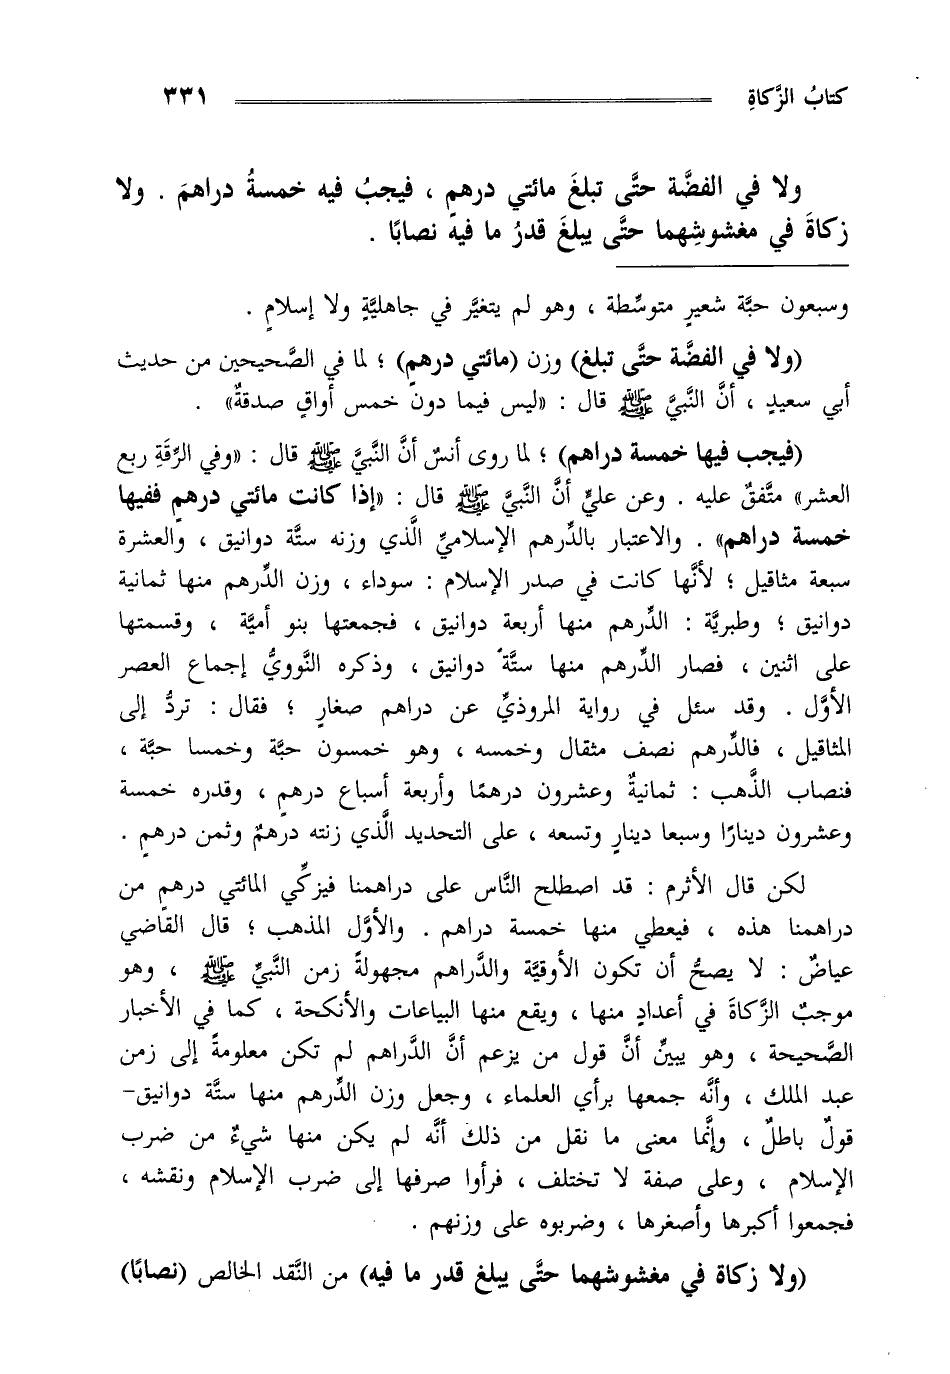 كتابُ الزَّكاةِ ٣٣١
ولا في الفضَّة حتَّى تبلغَ مائتي درهمٍ ، فيجبُ فيه خمسةُ دراهمَ . ولا
زكاةَ في مغشوشِهما حتَّى يبلغَ قدرُ ما فيه نصابًا .
وسبعون حبَّة شعيرٍ متوسِّطة ، وهو لم يتغيَّر في جاهليَّةٍ ولا إسلامٍ .
(ولا في الفضَّة حتَّى تبلغ) وزن (مائتي درهمٍ) ؛ لما في الصَّحيحين من حديث
أبي سعيدٍ ، أنَّ النَّبيَّ ﷺ قال : «ليس فيما دونَ خمس أواقٍ صدقةٌ» .
(فيجب فيها خمسة دراهم) ؛ لما روى أنسٌ أنَّ النَّبيَّ ﷺ قال : «وفي الرِّقَةِ ربع
العشر» متَّفقٌ عليه . وعن عليٍّ أنَّ النَّبيَّ ﷺ قال : «إذا كانت مائتي درهمٍ ففيها
خمسة دراهم» . والاعتبار بالدِّرهم الإسلاميِّ الَّذي وزنه ستَّة دوانيق ، والعشرة
سبعة مثاقيل ؛ لأنَّها كانت في صدر الإسلام : سوداء ، وزن الدِّرهم منها ثمانية
دوانيق ؛ وطبريَّة : الدِّرهم منها أربعة دوانيق ، فجمعتها بنو أميَّة ، وقسمتها
على اثنين ، فصار الدِّرهم منها ستَّةُ دوانيق ، وذكره النَّوويُّ إجماع العصر
الأوَّل . وقد سئل في رواية المروذيِّ عن دراهم صغارٍ ؛ فقال : تردُّ إلى
المثاقيل ، فالدِّرهم نصف مثقال وخمسه ، وهو خمسون حبَّة وخمسا حبَّة ،
فنصاب الذَّهب : ثمانيةٌ وعشرون درهمًا وأربعة أسباع درهمٍ ، وقدره خمسة
وعشرون دينارًا وسبعا دينارٍ وتسعه ، على التحديد الَّذي زنته درهمٌ وثمن درهمٍ .
لكن قال الأثرم : قد اصطلح النَّاس على دراهمنا فيزكِّي المائتي درهمٍ من
دراهمنا هذه ، فيعطي منها خمسة دراهم . والأوَّل المذهب ؛ قال القاضي
عياضٌ : لا يصحُّ أن تكون الأوقيَّة والدَّراهم مجهولةً زمن النَّبيِّ ﷺ ، وهو
موجبٌ الزَّكاةَ في أعدادٍ منها ، ويقع منها البياعات والأنكحة ، كما في الأخبار
الصَّحيحة ، وهو يبيِّن أنَّ قول من يزعم أنَّ الدَّراهم لم تكن معلومةً إلى زمن
عبد الملك ، وأنَّه جمعها برأي العلماء ، وجعل وزن الدِّرهم منها ستَّة دوانيق-
قولٌ باطلٌ ، وإنَّما معنى ما نقل من ذلك أنَّه لم يكن منها شيءٌ من ضرب
الإسلام ، وعلى صفة لا تختلف ، فرأوا صرفها إلى ضرب الإسلام ونقشه ،
فجمعوا أكبرها وأصغرها ، وضربوه على وزنهم .
(ولا زكاة في مغشوشهما حتَّى يبلغ قدر ما فيه) من النَّقد الخالص (نصابًا)